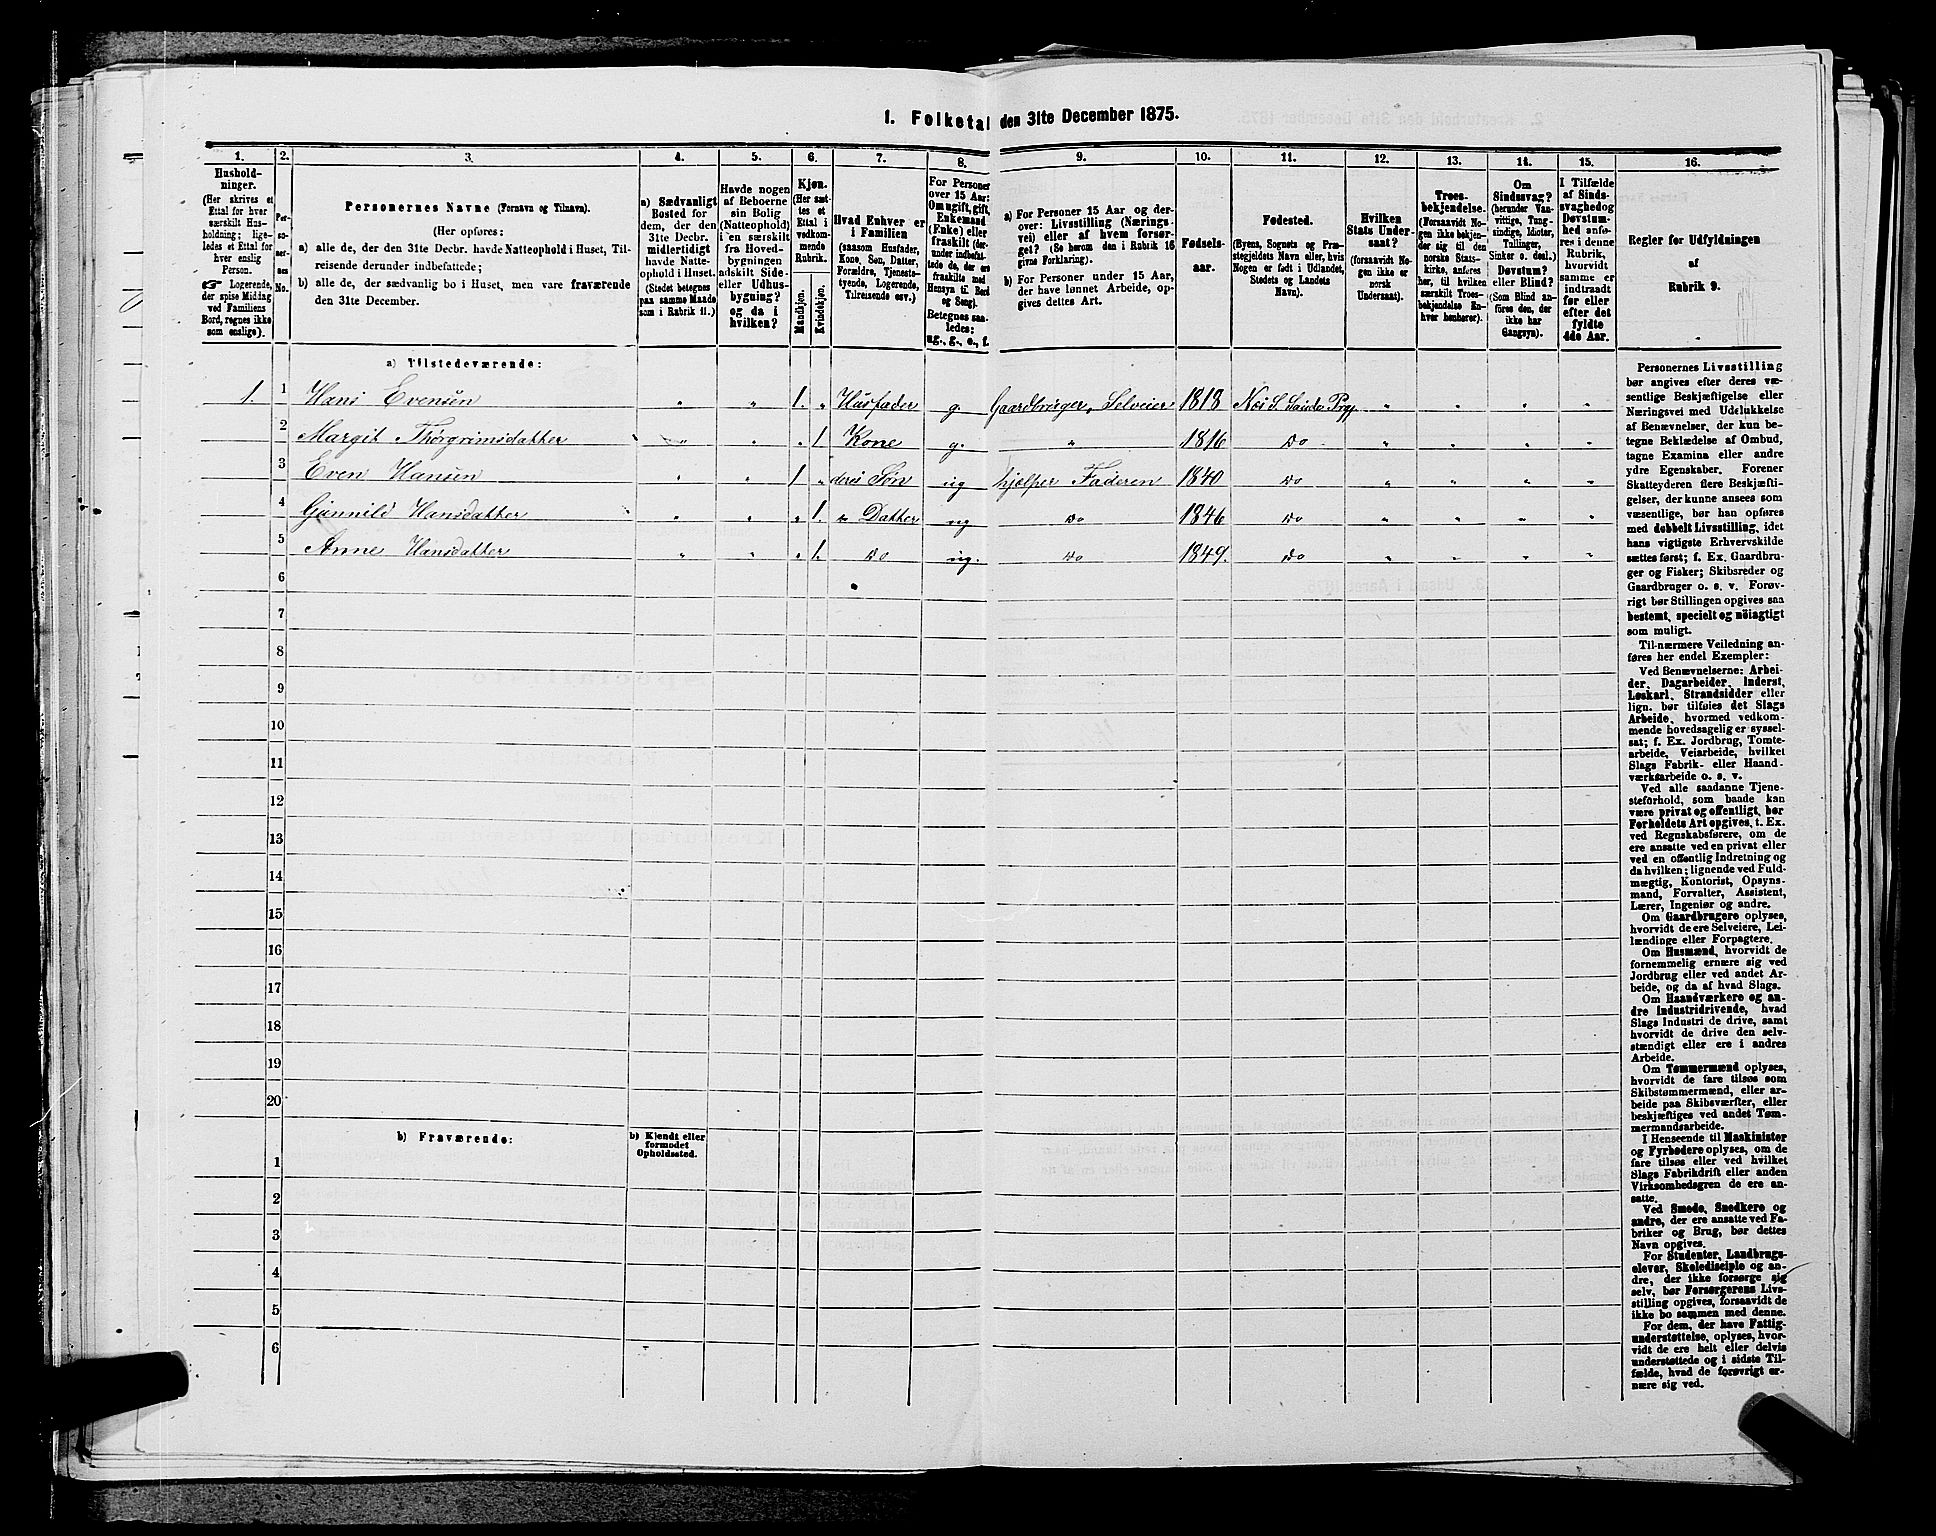 1. Folketal den 31te December 1875.
1. 2. 3. 4. 5. 6. 7. 8. 9. 10. 11. 12. 13. 14. 15. 16.
Hushold-
ninger.
(Her skrives et
Ettal for hver
særskilt Hus-
holdning; lige-
ledes et Ettal for
hver enslig
Person.
☞ Logerende,
der spise Middag
ved Familiens
Bord, regnes ikke
som enslige).
Per-
so-
ner-
nes
No.
Personernes Navne (Fornavn og Tilnavn).
(Her opføres:
a) alle de, der den 31te Decbr. havde Natteophold i Huset, Til-
reisende derunder indbefattede;
b) alle de, der sædvanlig bo i Huset, men vare fraværende
den 31te December.
a) Sædvanligt
Bosted for
dem, der den
31te Decbr.
midlertidigt
havde Natte-
ophold i Huset.
(Stedet betegnes
paa samme Maade
som i Rubrik 11.)
Havde nogen
af Beboerne
sin Bolig
(Natteophold)
i en særskilt
fra Hoved-
bygningen
adskilt Side-
eller Udhus-
bygning?
og da i
hvilken?
Kjøn.
(Her sæt-
tes et
Ettal i
vedkom-
mende
Rubrik.
Mandkjøn.
Kvindekjøn.
Hvad Enhver er
i Familien
(saasom Husfader,
Kone, Søn, Datter,
Forældre, Tjeneste-
tyende, Logerende,
Tilreisende osv.)
For Personer
over 15 Aar:
Om ugift, gift,
Enkemand
(Enke) eller
fraskilt (der-
under indbefat-
tede de, der ere
fraskilte med
Hensyn til Bord
og Seng).
Betegnes saa-
ledes:
ug., g., e., f.
a) For Personer 15 Aar og der-
over: Livsstilling (Nærings-
vei) eller af hvem forsør-
get? (Se herom den i Rubrik 16
givne Forklaring).
b) For Personer under 15 Aar,
der have lønnet Arbeide, op-
gives dettes Art.
Fødsels-
aar.
Fødested.
(Byens, Sognets og Præ-
stegjeldets Navn eller, hvis
Nogen er født i Udlandet,
Stedets og Landets
Navn).
Hvilken
Stats Under-
saat?
(forsaavidt No-
gen ikke er
norsk
Undersaat).
Troes-
bekjendelse.
(Forsaavidt No-
gen ikke bekjen-
der sig til den
norske Stats-
kirke, anføres
her, til hvilken
særskilt Troes-
bekjendelse En-
hver henhører).
Om
Sindssvag?
(herunder Van-
vittige, Idioter,
Tullinger,
Sinker o. desl.)
Døvstum?
eller Blind?
(Som Blind an-
føres den, der
ikke har
Gangsyn).
I Tilfælde
af Sinds-
svaghed og
Døvstum-
hed anfø-
res i denne
Rubrik,
hvorvidt
samme er
indtraadt
før eller
efter det
fyldte
4de Aar.
Regler for Udfyldningen
af
Rubrik 9.
a) Tilstedeværende:
1. 1 Hans Evensen " " 1. " Husfader g. Gaardbruger, Selveier 1813 " " " "
2 Margit Thorgrimsdatter " " " 1 Kone g. " 1816 Do " " " "
3 Even Hansen " " 1 " deres Søn ug hjælper Faderen 1840 Do " " " "
4 Gunnild Hansdatter " " " 1. " Datter ug Do 1846 Do " " " "
5 Anne Hansdatter " " " 1. Do ug. Do 1849. Do " " " "
6
7
8
9
10
11
12
13
14
15
16
17
18
19
20
b) Fraværende:
b) Kjendt eller
formodet
Opholdssted.
1
2
3
4
5
6
Personernes Livsstilling
bør angives efter deres væ-
sentlige Beskjæftigelse eller
Næringsvei med Udelukkelse
af Benævnelser, der kun be-
tegne Beklædelse af Ombud,
tagne Examina eller andre
ydre Egenskaber. Forener
Skatteyderen flere Beskjæfti-
gelser, der kunne ansees som
væsentlige, bør han opføres
med dobbelt Livsstilling, idet
hans vigtigste Erhvervskilde
sættes først; f. Ex. Gaardbru-
ger og Fisker; Skibsreder og
Gaardbruger o. s. v. Forøv-
rigt bør Stillingen opgives saa
bestemt, specielt og nöiagtigt
som muligt.
Til nærmere Veiledning an-
føres her endel Exempler:
Ved Benævnelserne: Arbei-
der, Dagarbeider, Inderst,
Løskarl, Strandsidder eller
lign. bør tilføies det Slags
Arbeide, hvormed vedkom-
mende hovedsagelig er syssel-
sat; f. Ex. Jordbrug, Tomte-
arbeide, Veiarbeide, hvilket
Slags Fabrik- eller Haand-
værksarbeide o. s. v.
Ved alle saadanne Tjene-
steforhold, som baade kan
være privat og offentligt, bør
Forholdets Art opgives, t. Ex.
ved Regnskabsførere, om de
ere ansatte ved en privat eller
ved en offentlig Indretning og
da hvilken; lignende ved Fuld-
mægtig, Kontorist, Opsyns-
mand, Forvalter, Assistent,
Lærer, Ingeniør og andre.
Om Gaardbrugere oplyses,
hvorvidt de ere Selveiere, Lei-
lændinge eller Forpagtere.
Om Husmænd, hvorvidt de
fornemmelig ernære sig ved
Jordbrug eller ved andet Ar-
beide, og da af hvad Slags.
Om Haandværkere og an-
dre Industridrivende, hvad
Slags Industri de drive, samt
hvorvidt de drive den selv-
stændigt eller ere i andres
Arbeide.
Om Tømmermænd oplyses,
hvorvidt de fare tilsøs som
Skibstømmermænd, eller ar-
beide paa Skibsværfter, eller
beskjæftiges ved andet Tøm-
mermandsarbeide.
I Henseende til Maskinister
og Fyrbødere oplyses, om de
fare tilsøs eller ved hvilket
Slags Fabrikdrift eller anden
Virksomhedsgren de ere an-
satte.
Ved Smede, Snedkere og
andre, der ere ansatte ved Fa-
briker og Brug, bør dettes
Navn opgives.
For Studenter, Landbrugs-
elever, Skoledisciple og an-
dre, der ikke forsørge sig
selv, bør Forsørgerens Livs-
stilling opgives, forsaavidt de
ikke bo sammen med denne.
For dem, der have Fattig-
understøttelse, oplyses, hvor-
vidt de ere helt eller delvis
understøttede og i sidste Til-
fælde, hvad de forøvrigt er-
nære sig ved.